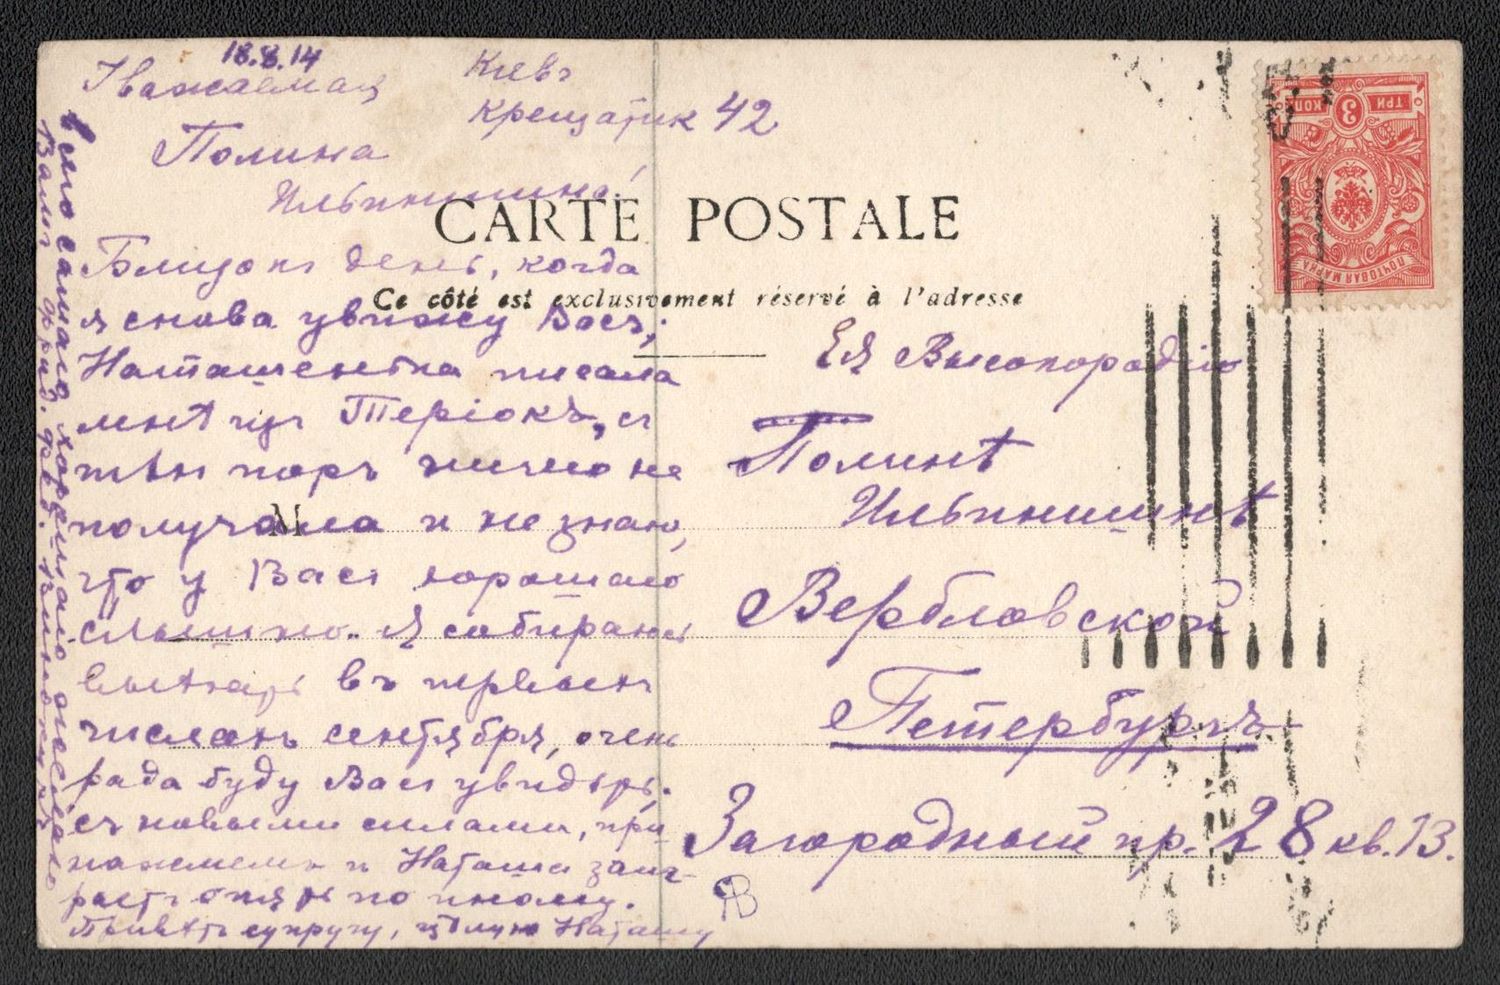 18.8.14
Кіевъ
Крещатик 42
Уважаемая
Полина
Ильинишна!
CARTE POSTALE
Ce côté est exclusivement réservé à l'adresse
Близокъ день, когда
я снова увижу Васъ,
Наташенька писала
мнѣ изъ Теріокъ, съ
тѣхъ поръ ничего не
получала и не знаю,
что у Васъ хорошаго
слышно. Я собираюсь
выѣхать въ первыхъ
числахъ сентября, очень
рада буду Васъ увидѣть.
Съ новыми силами, при-
нажмемъ и Наташа заиг-
раетъ опять по иному.
Привѣтъ супругу, цѣлую Наташу
Всего самаго хорошаго желаю
Вамъ
M
Ея Высокородію
Полинѣ
Ильинишнѣ
Вербловской
Петербургъ
Загородный пр. 28 кв. 13.
ТРИ 3 КОП
ПОЧТОВАЯ МАРКА